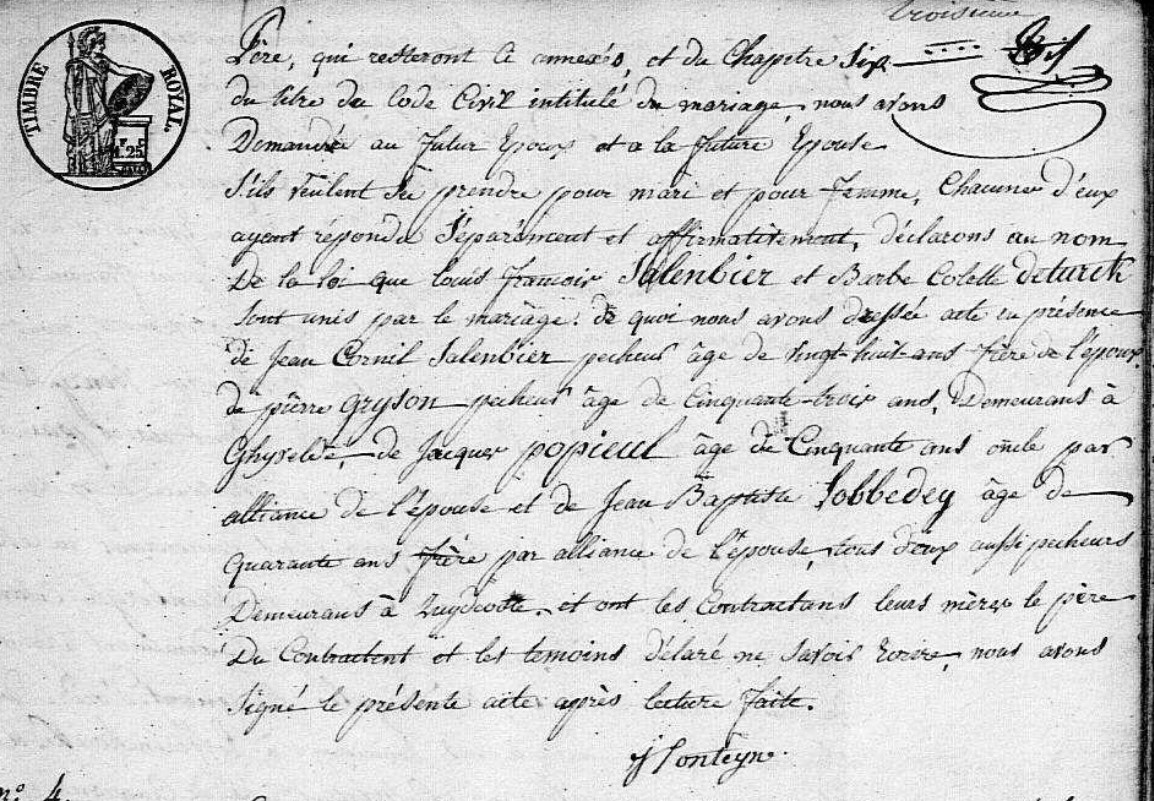 troisième
TIMBRE ROYAL.
1.25
Père, qui resteront ci annexés, et du Chapitre six
du titre du Code Civil intitulé du mariage, nous avons
Demandé au futur Epoux et a la future Epouse
S'ils veulent se prendre pour mari et pour femme, Chacune d'eux
ayant répondu Séparément et affirmativement, déclarons au nom
De la loi que Louis francois Salenbier et Barbe Colette deturck
Sont unis par le mariage. de quoi nous avons dressée acte en présence
de Jean Cornil Salenbier pecheur âge de vingt-huit-ans frère de l'époux
de pierre gryson pecheur âge de Cinquante-trois ans, Demeurans à
Ghyvelde, de Jacques popieul âge de Cinquante ans oncle par
alliance de l'épouse et de Jean Baptiste Lobbedey âge de
quarante ans frère par alliance de l'épouse, tous deux aussi pecheurs
Demeurans à Zuydcoote, et ont les Contractans leurs mères le père
Du Contractent et les temoins délaré ne Savoir Ecrire, nous avons
Signé le présente acte après lecture faite.
n.° 4.